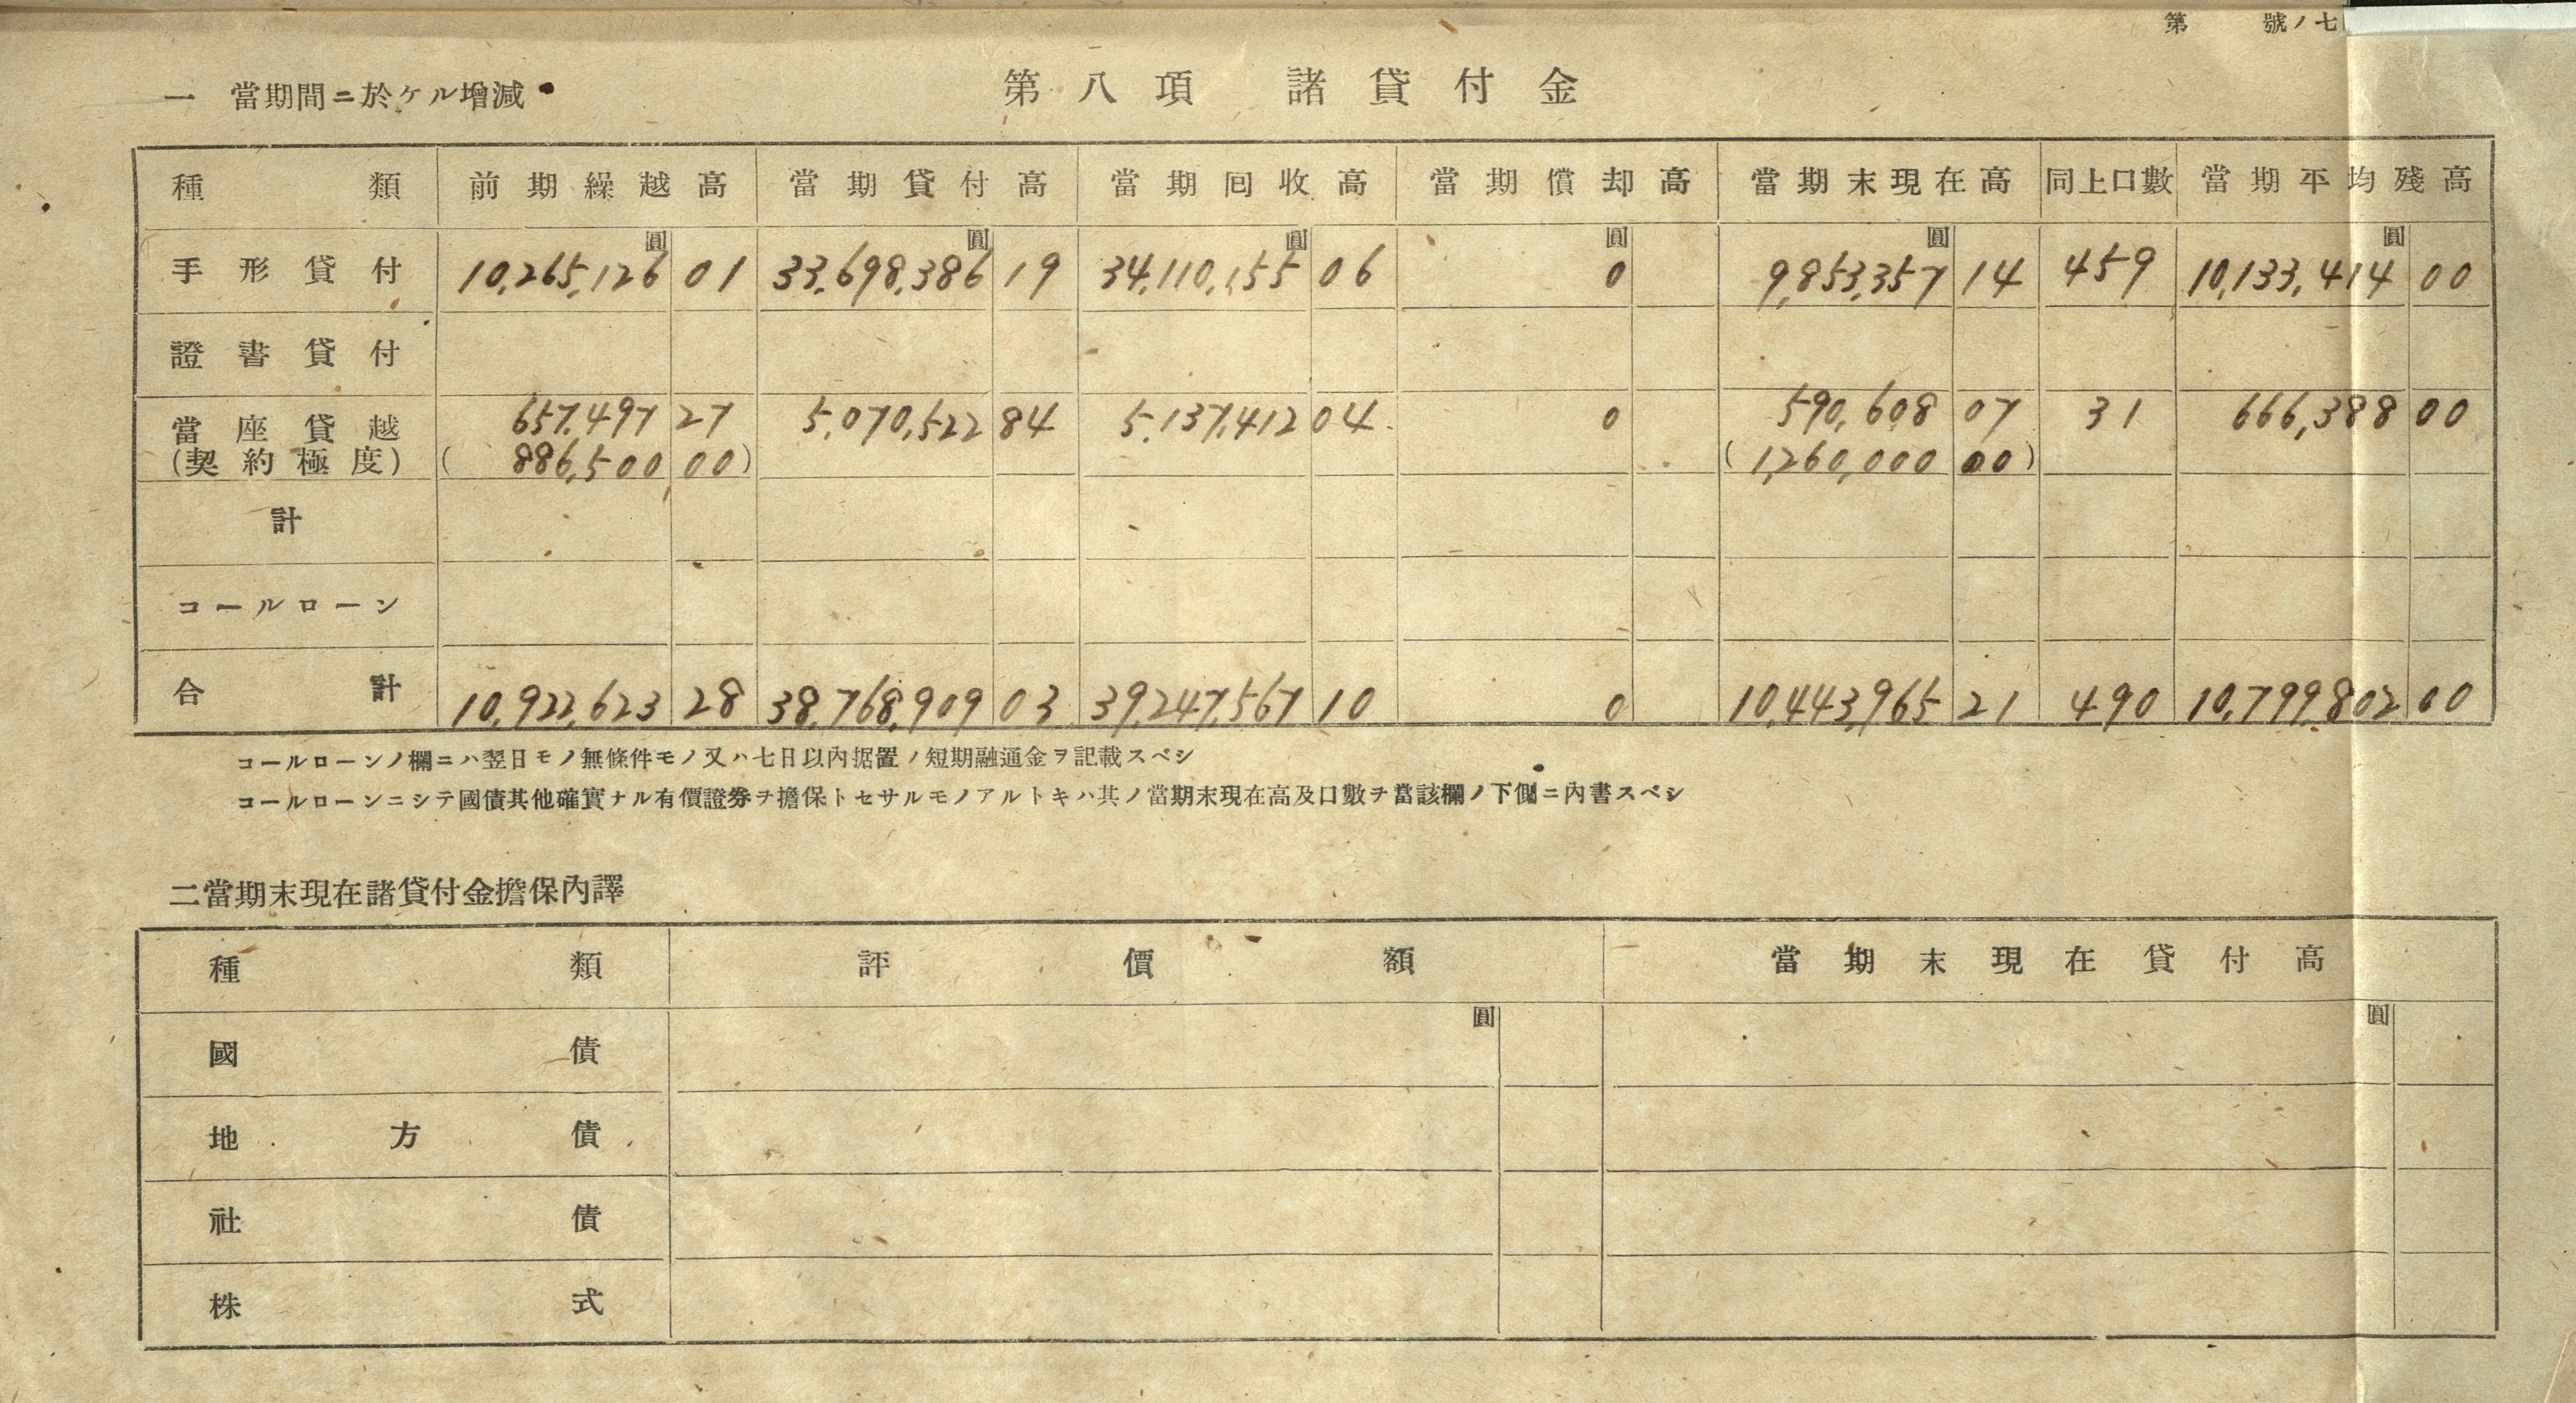 第 號ノ七
第八項 諸貸付金
一 當期間ニ於ケル增減
種類 前期繰越高 當期貸付高 當期囘收高 當期償却高 當期末現在高 同上口數 當期平均殘高
圓 圓 圓 圓 圓 圓
手形貸付 10,265,126 01 33,698,386 19 34,110,155 06 0 9,853,357 14 459 10,133,414 00
證書貸付
當座貸越 657,497 27 5,070,522 84 5,137,412 04 0 590,608 07 31 666,388 00
(契約極度) (886,500 00) (1,260,000 00)
計
コールローン
合計 10,922,623 28 38,768,909 03 39,247,567 10 0 10,443,965 21 490 10,799,802 00
コールローンノ欄ニハ翌日モノ無條件モノ又ハ七日以內据置ノ短期融通金ヲ記載スベシ
コールローンニシテ國債其他確實ナル有價證券ヲ擔保トセサルモノアルトキハ其ノ當期末現在高及口數ヲ當該欄ノ下側ニ內書スベシ
二當期末現在諸貸付金擔保內譯
種類 評價額 當期末現在貸付高
圓 圓
國債
地方債
社債
株式